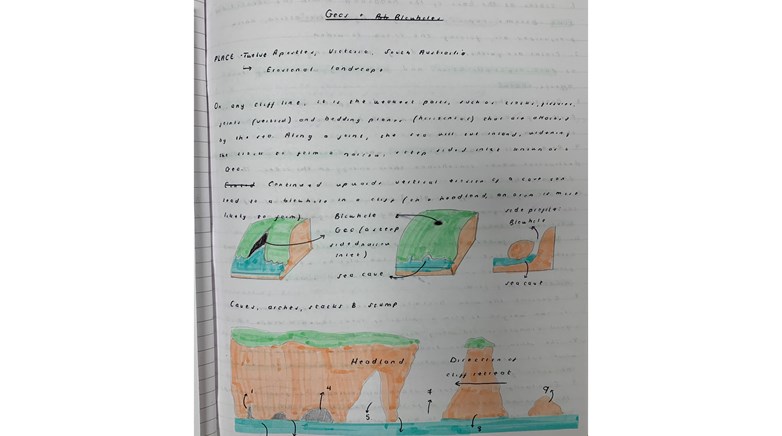 Geos + Blowholes
PLACE - Twelve Apostles, Victoria, South Australia
↳ Erosional landscape
On any cliff line, it is the weakest parts, such as cracks, fissures,
joints (vertical) and bedding planes (horizontal) that are attacked
by the sea. Along a joint, the sea will cut inland, widening
the crack to form a narrow steep sided inlet known as a
Geo.
Continued upwards vertical erosion of a cave can
lead to a blowhole in a cliff (on a headland, an arch is most
likely to form)
Blowhole
Geo (a steep
sided narrow
inlet)
sea cave
side profile:
Blowhole
sea cave
Caves, arches, stacks & stump
Headland
Direction of
cliff retreat
1
4
5
7
8
9